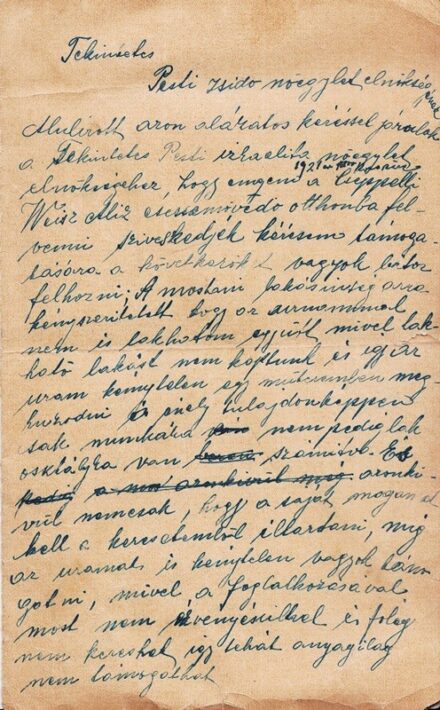 Tekintetes
Pesti izsido nőegylet elnökség
ének
Alulirott azon alázatos kéréssel járulok
a Tekintetes Pesti izraelita nőegylet
elnökségéhez, hogy engem 1921 a Cseppelli
Weisz Aliz csecsemővédő otthonba fel-
venni sziveskedjék kérésem támoga-
tására a következőket vagyok bátor
felhozni: A mostani lakásinség arra
kényszeritetett hogy az urammal
nem is lakhatom együtt mivel lak-
ható lakást nem kaptunk és igy az
uram kénytelen egy műteremben meg-
huzodni és mely tulajdonképpen
csak munkára nem pedig lak
osztályra van számitva. És
pedig a mai azonkivül még azonki-
vül nemcsak, hogy a saját magam el
kell a keresetemből illartani, mig
az uramat is kénytelen vagyok támo
gatni, mivel a foglalkozásával
most nem érvényesülhet és főleg
nem kereshet igy tehát anyagilag
nem támogathat